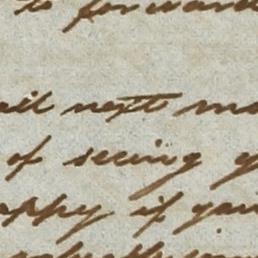 to forward
ail next mo
of seeing y
appy if you